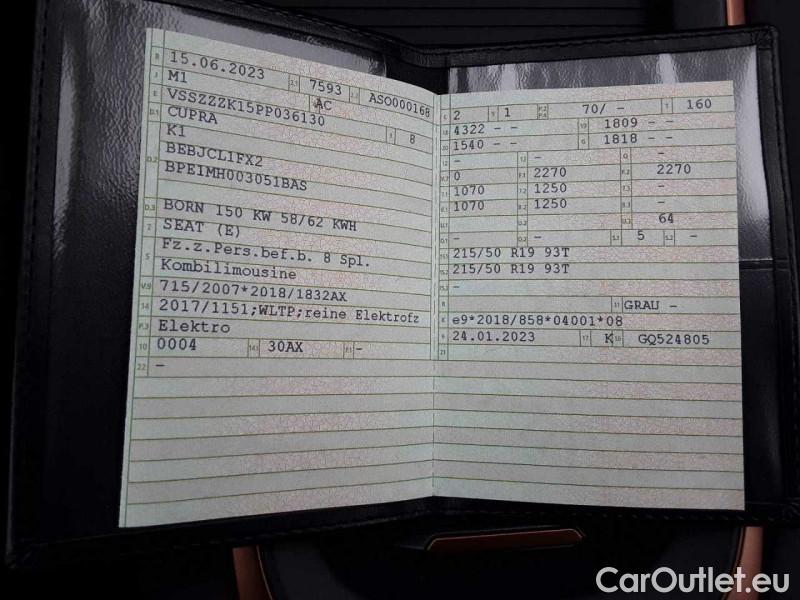 B 15.06.2023 2.1 7593 2.2 ASO000168
J M1 4 AC
E VSSZZZK15PP036130
D.1 CUPRA 3 8
K1
D.2 BEBJCL1FX2
BPE1MH003051BAS
D.3 BORN 150 KW 58/62 KWH
2 SEAT (E)
5 Fz.z.Pers.bef.b. 8 Spl.
Kombilimousine
V.9 715/2007*2018/1832AX
14 2017/1151;WLTP;reine Elektrofz
P.3 Elektro
10 0004 14.1 30AX P.1 -
22 -
L 2 9 1 P.2 P.4 70/ - T 160
18 4322 - - 19 1809 - -
20 1540 - - G 1818 - -
12 - 13 - Q -
V.7 0 F.1 2270 F.2 2270
7.1 1070 7.2 1250 7.3 -
8.1 1070 8.2 1250 8.3 -
U.1 - U.2 - U.3 64
O.1 - O.2 - S.1 5 S.2 -
15.1 215/50 R19 93T
15.2 215/50 R19 93T
15.3 -
R 11 GRAU -
K e9*2018/858*04001*08
6 24.01.2023 17 K 16 GQ524805
21
CarOutlet.eu